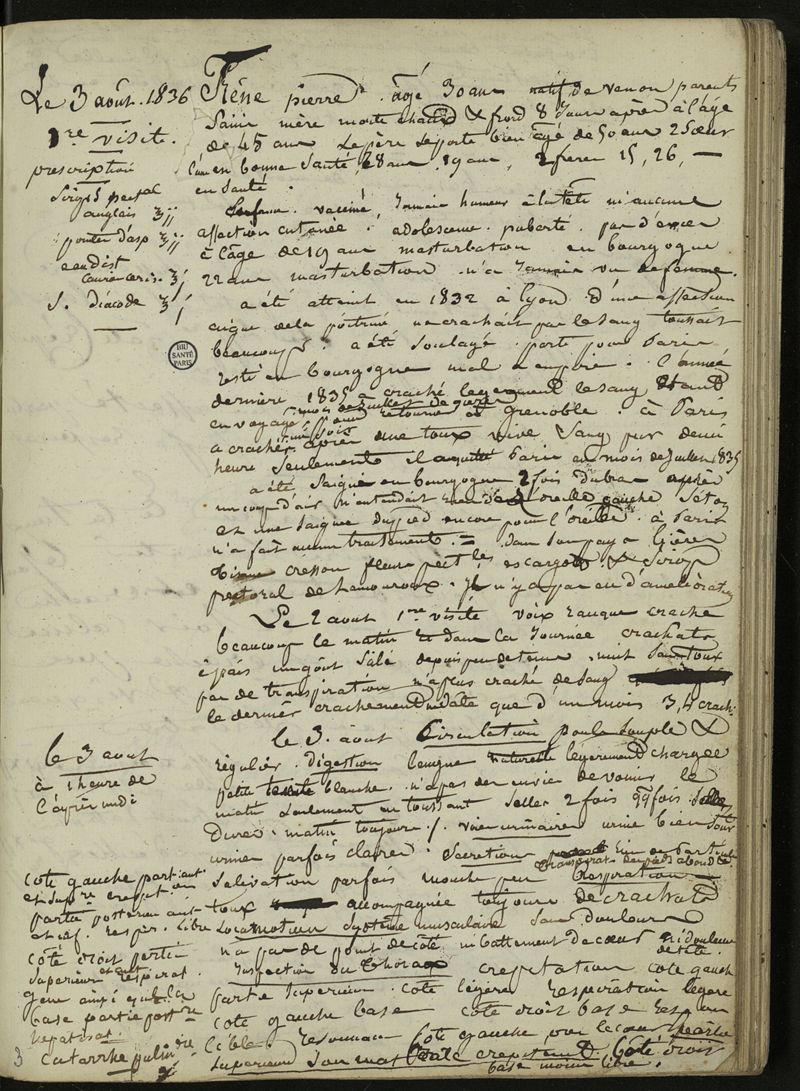 Le 3 août 1836
1re visite.
prescription
Sirop pectal
anglais ʒij
ʒij
eau dist
laurier ceris. ʒj
S. diacode ʒj
BIU
SANTÉ
PARIS
pierre. âgé 30 ans natif de venon parents
Sains mère morte chaud & froid 8 Jours après à l'âge
de 45 ans Le père Se porte bien âgé de 50 ans 2 Sœur
en bonne Santé, 28 ans, 19 ans, 2 frere 15, 26, —
en Santé.
vacciné, Jamais humeur à la tête ni aucune
affection cutanée. adolescence. puberté. pas d'exces
à l'âge de 19 ans masturbation en bourgogne
22 ans masturbation. n'a Jamais vu de femme.
a été atteint en 1832 à lyon d'une affection
aigue de la poitrine, ne crachait pas le sang toussait
beaucoup. a été Soulagé. parti pour Paris
resté en bourgogne mal a empiré. l'année
dernière 1835 a craché legerement le sang étant
en voyage pour retourner à grenoble. à Paris
a craché après une toux vive Sang pur demi
heure Seulement il a quitté Paris au mois de Juillet 1835
a été Saigné en bourgogne 2 fois du bras après
un coup d'air n'entendait rien de l'oreille gauche Seton
et une Saignée du pied encore pour l'oreille. à Paris
n'a fait aucun traitement. = dans Son pays
cresson fleurs pect les escargots & Sirop
pectoral de Lamouroux. Il n'y a pas eu d'amélioration
Le 2 aout 1re visite voix rauque crache
beaucoup le matin & dans la Journée crachats
épais un goût Salé depuis peu de tems nuit Sans toux
pas de transpiration n'a plus craché de sang
le dernier crachement ne date que d'un mois 3, 4 crach.
le 3 août
à 1 heure de
l'après midi
le 3. août Circulation pouls Souple &
régulier. digestion langue naturelle légèrement chargée
petite teinte blanche. n'a pas des envies de vomir le
matin Seulement en toussant Selles 2 fois qq fois. Selles
Dures. matin toujours 1. voies urinaires urine bien
urines parfois claires. Secretions rien de particulier
transpirat. des pieds abondte.
Salivation parfois mouche peu Respiration
toux accompagnée toujours de crachats
Locomotion Système musculaire Sans douleurs
n'a pas de point de côté ni battement de cœur ni douleur
de tête.
Inspection du thorax crepitation côté gauche
partie Superieure. côté légère respiration legere
côté gauche base côté droit base resp. un
côté gauche vers le cœur partie
Superieure Son mat râle crepitant. Côté droit
base moins libre.
côté gauche partie ant
et Supre crepitation
partie posterieure ant
et inf. respir. libre
côté droit partie
Superieure et ant respirat.
gene ainsi que la
base partie postre
hepatisat.
catarrhe pulm.
3